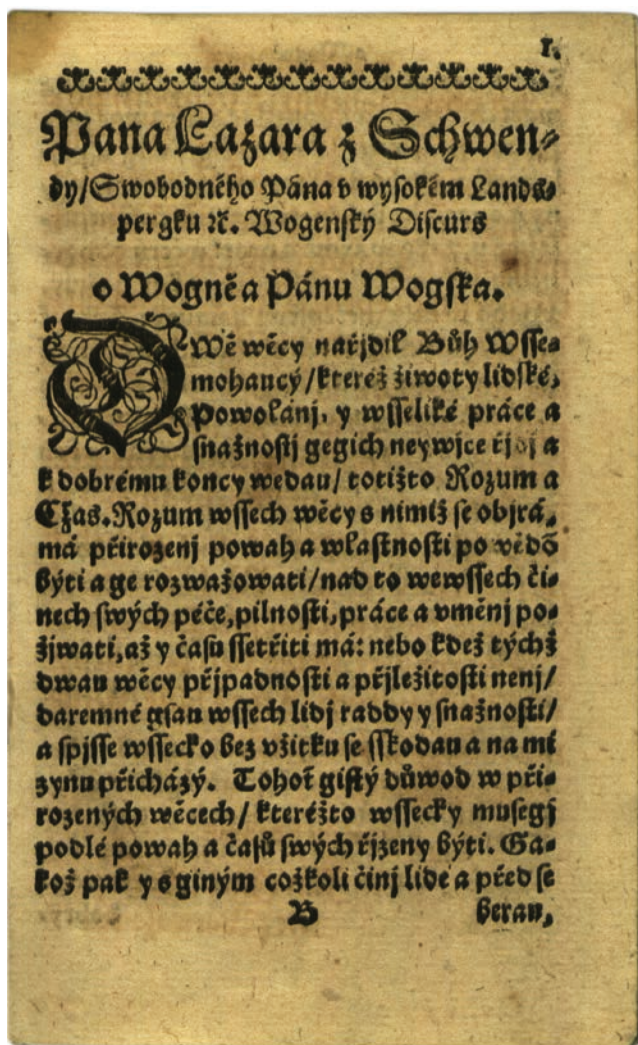 1.
Pana Lazara z Schwen⸗
dy/Swobodného Pána v wysokém Lands⸗
pergku ꝛc. Wogenský Discurs
o Wogně a Pánu Wogska.
DWě wěcy nařjdil Bůh Wsse⸗
mohaucý/kteréž žiwoty lidské,
Powolánj, y wsseliké práce a
snažnostj gegich neywjce řjdj a
k dobrému koncy wedau/ totižto Rozum a
Czas. Rozum wssech wěcy s nimiž se objrá,
má přirozenj powah a wlastnosti powědō
býti a ge rozwažowati/nad to wewssech či⸗
nech swých péče, pilnosti, práce a vměnj po⸗
žjwati, až y času ssetřiti má: nebo kdež týchž
dwau wěcy přjpadnosti a přjležitosti nenj/
daremné gsau wssech lidj raddy y snažnosti/
a spjsse wssecko bez vžitku se sskodau a na mi
zynu přicházý. Tohoť gistý důwod w při⸗
rozených wěcech/ kteréžto wssecky musegj
podlé powah a časů swých řjzeny býti. Ga⸗
kož pak y s giným cožkoli činj lidé a před se
B beran,